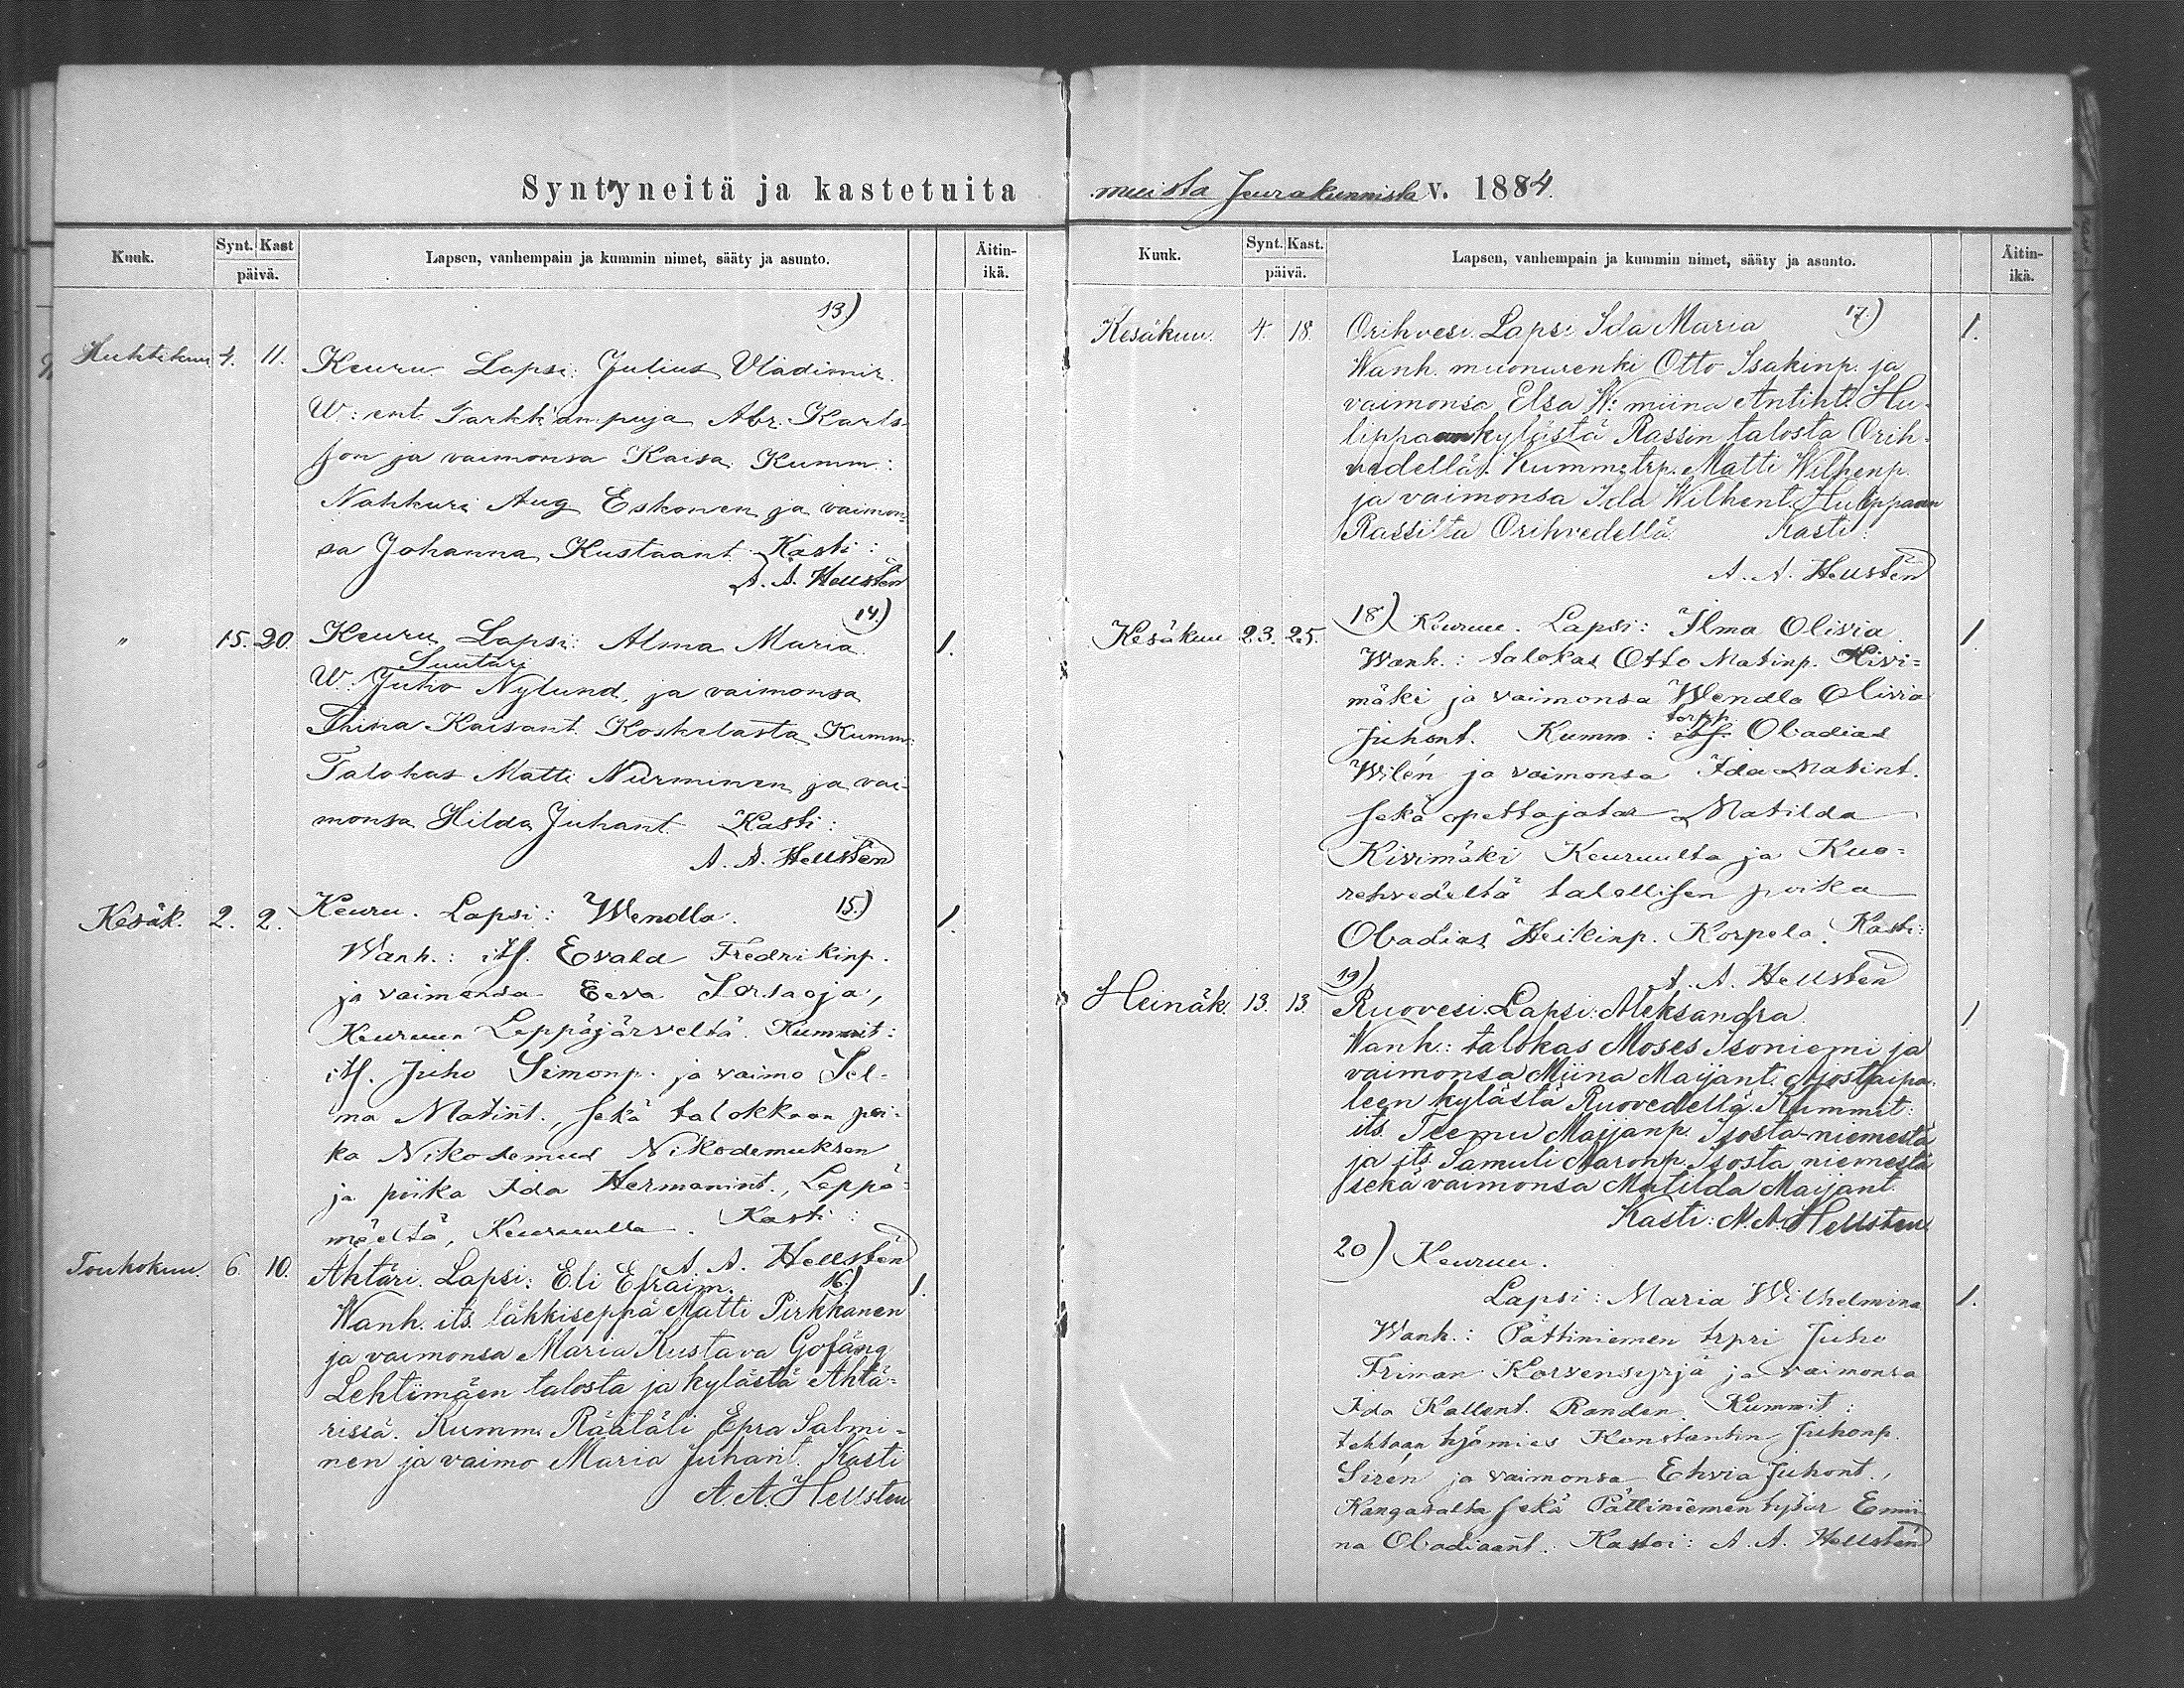 Syntyneitä ja kastetuita
Kuuk. Synt. Kast Lapsen, vanhempain ja kummin nimet, sääty ja asunto. Äitin-
päivä. ikä.
13.)
Huhtikuu 4. 11. Keuru Lapsi: Julius Vladimir.
W: ent. Tarkk'ampuja Abr. Karls-
son ja vaimonsa Kaisa. Kumm:
Nahkuri Aug Eskonen ja vaimon-
sa Johanna Kustaant. Kasti:
A. A. Hellstén
14.)
" 15. 20. Keuru Lapsi: Alma Maria. 1.
Suutari
W: Juho Nylund, ja vaimonsa
Thina Kaisant. Koskelasta Kumm:
Talokas Matti Nurminen ja vai-
monsa Hilda Juhant. Kasti:
A. A. Hellstén
Kesäk. 2. 2. Keuru. Lapsi: Wendla. 15.) 1.
Wanh.: itf. Evald Fredrikinp.
ja vaimonsa Eeva Sorsaoja,
Keuruun Leppäjärveltä. Kummit:
itf. Juho Simonp. ja vaimo Sel-
ma Matint., sekä talokkaan poi-
ka Nikodemus Nikodemuksen
ja piika Ida Hermanint., Leppä-
mäeltä, Keuruulla. Kasti:
A. A. Hellstén
Touhokuu. 6. 10. Ahtäri. Lapsi: Eli Efraim. 16.) 1.
Wanh. its. läkkiseppä Matti Pirkkanen
ja vaimonsa Maria Kustava Gofäng
Lehtimäen talosta ja kylästä Ahtä-
rissä. Kumm. Räätäli Epra Salmi-
nen ja vaimo Maria Juhant. Kasti
A. A. Hellsten
muista Seurakunnista v. 1884.
Kuuk. Synt. Kast. Lapsen, vanhempain ja kummin nimet, sääty ja asunto. Äitin-
päivä. ikä.
Kesäkuu. 4. 18. Orihvesi. Lapsi Ida Maria 17.) 1.
Wanh. muonurenki Otto Isakinp. ja
vaimonsa Elsa W:miina Antint. Hu-
lippaankylästä Rassin talosta Orih-
vedellä. Kumm: trp. Matti Wilhenp.
ja vaimonsa Ida Wilhent. Hulippaan
Rassilta Orihvedellä. Kasti:
A. A. Hellstén
Kesäkuu 23. 25. 18.) Keuruu. Lapsi: Ilma Olivia. 1.
Wanh.: talokas Otto Matinp. Kivi-
mäki ja vaimonsa Wendla Olivia
torpp.
Juhont. Kumm: itf. Obadias
Wilén ja vaimonsa Ida Matint.
sekä opettajatar Matilda
Kivimäki Keuruulta ja Kuo-
rehvedeltä talollisen poika
Obadias Heikinp. Korpela. Kasti:
A. A. Hellstén
19.)
Heinäk. 13. 13. Ruovesi. Lapsi: Aleksandra. 1
Wanh.: talokas Moses Isoniemi ja
vaimonsa Miina Maijant.
leen kylästä Ruovedellä. Kummit:
its. Teemu Maijanp. Isosta-niemestä
ja its. Samuli Aaronp. Isosta niemestä
sekä vaimonsa Matilda Maijant.
Kasti: A. A. Hellsten
20.) Keuruu.
Lapsi: Maria Wilhelmina 1.
Wanh.: Pättiniemen trpri Juho
Friman Korvensyrjä ja vaimonsa
Ida Kallent. Randen. Kummit:
tehtaan työmies Konstantin Juhonp.
Sirén ja vaimonsa Ehvia Juhont.,
Kangasalta sekä Pättiniemen tytär Emii-
na Obadiaant. Kastoi: A. A. Hellstén